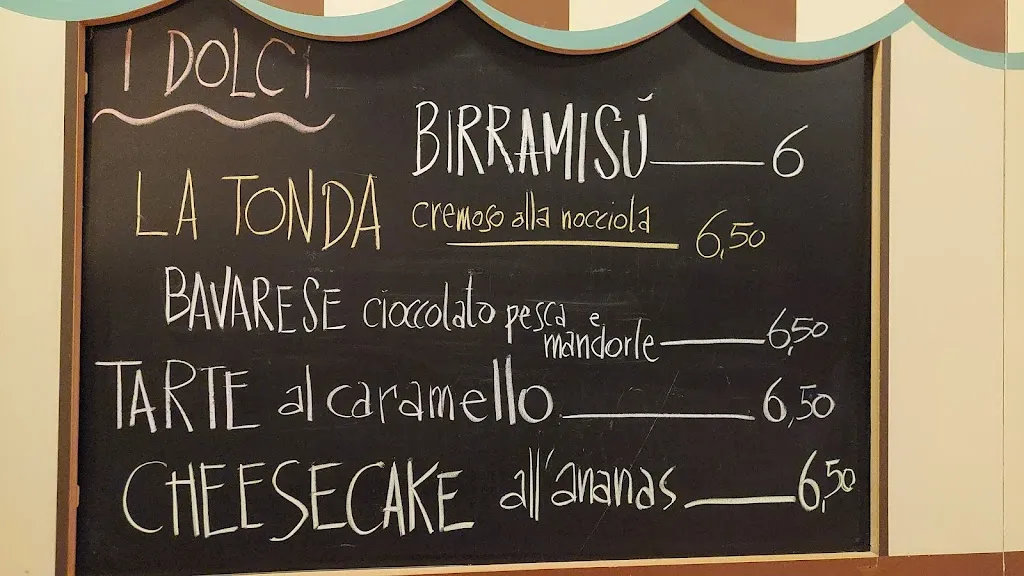 I DOLCI
BIRRAMISÚ 6
LA TONDA cremoso alla nocciola 6,50
BAVARESE cioccolato pesca e
mandorle 6,50
TARTE al caramello 6,50
CHEESECAKE all'ananas 6,50